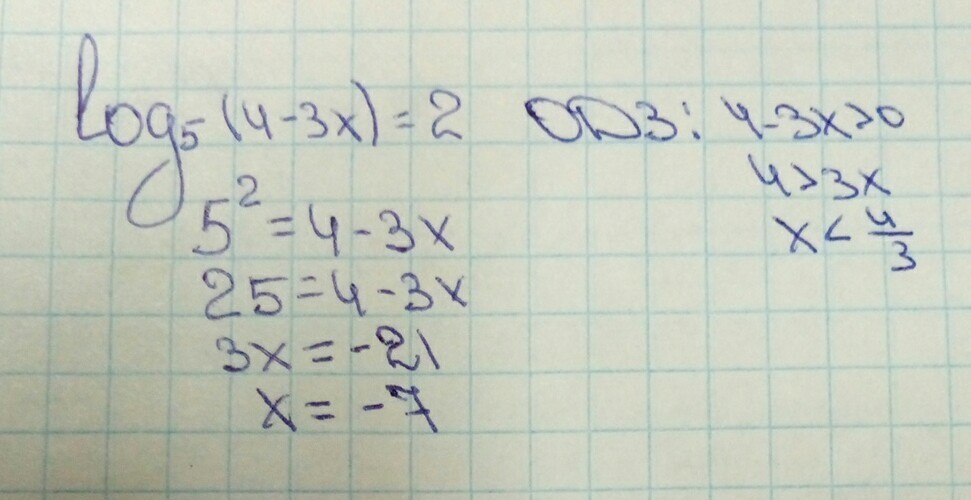 log₅(4-3x)=2 ОДЗ: 4-3x>0
4>3x
5²=4-3x x<4/3
25=4-3x
3x=-21
x=-7